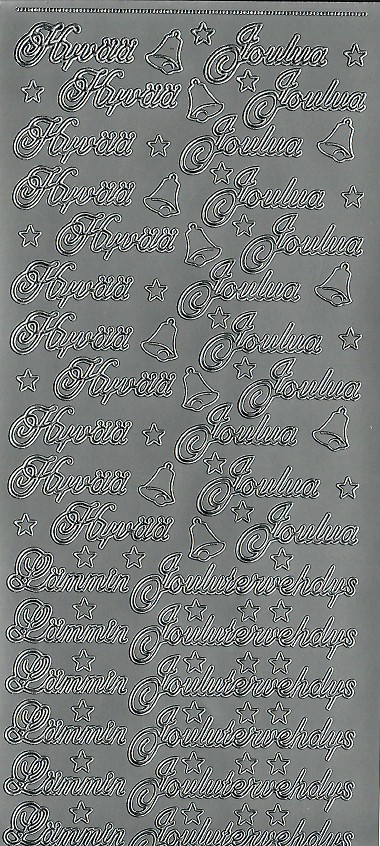 Hyvää Joulua
Hyvää Joulua
Hyvää Joulua
Hyvää Joulua
Hyvää Joulua
Hyvää Joulua
Hyvää Joulua
Hyvää Joulua
Hyvää Joulua
Hyvää Joulua
Hyvää Joulua
Lämmin Joulutervehdys
Lämmin Joulutervehdys
Lämmin Joulutervehdys
Lämmin Joulutervehdys
Lämmin Joulutervehdys
Lämmin Joulutervehdys